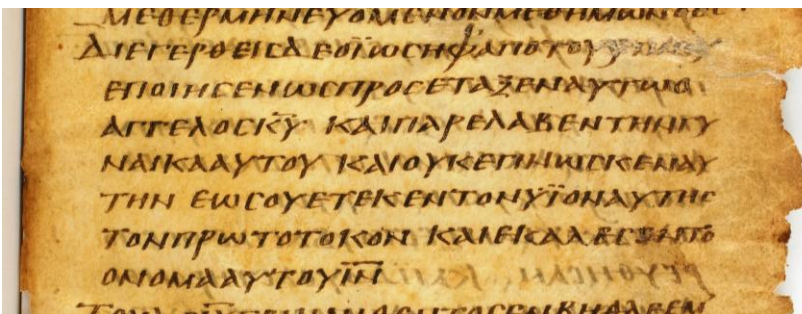 ΜΕΘΕΡΜΗΝΕΥΟΜΕΝΟΝΜΕΘΗΜΩΝ
ΔΙΕΓΕΡΘΕΙCΔΕΟΪΩCΗΦΑΠΟΤΟΥ
ΕΠΟΙΗCΕΝΩCΠΡΟCΕΤΑΞΕΝΑΥΤΩΟ
ΑΓΓΕΛΟCΚ̅Υ̅ ΚΑΙΠΑΡΕΛΑΒΕΝΤΗΝΓΥ
ΝΑΙΚΑΑΥΤΟΥ ΚΑΙΟΥΚΕΓΙΝΩCΚΕΝΑΥ
ΤΗΝ ΕΩCΟΥΕΤΕΚΕΝΤΟΝΥΪΟΝΑΥΤΗC
ΤΟΝΠΡΩΤΟΤΟΚΟΝ ΚΑΙΕΚΑΛΕCΕΝΤΟ
ΟΝΟΜΑΑΥΤΟΥΙ̅Ν̅